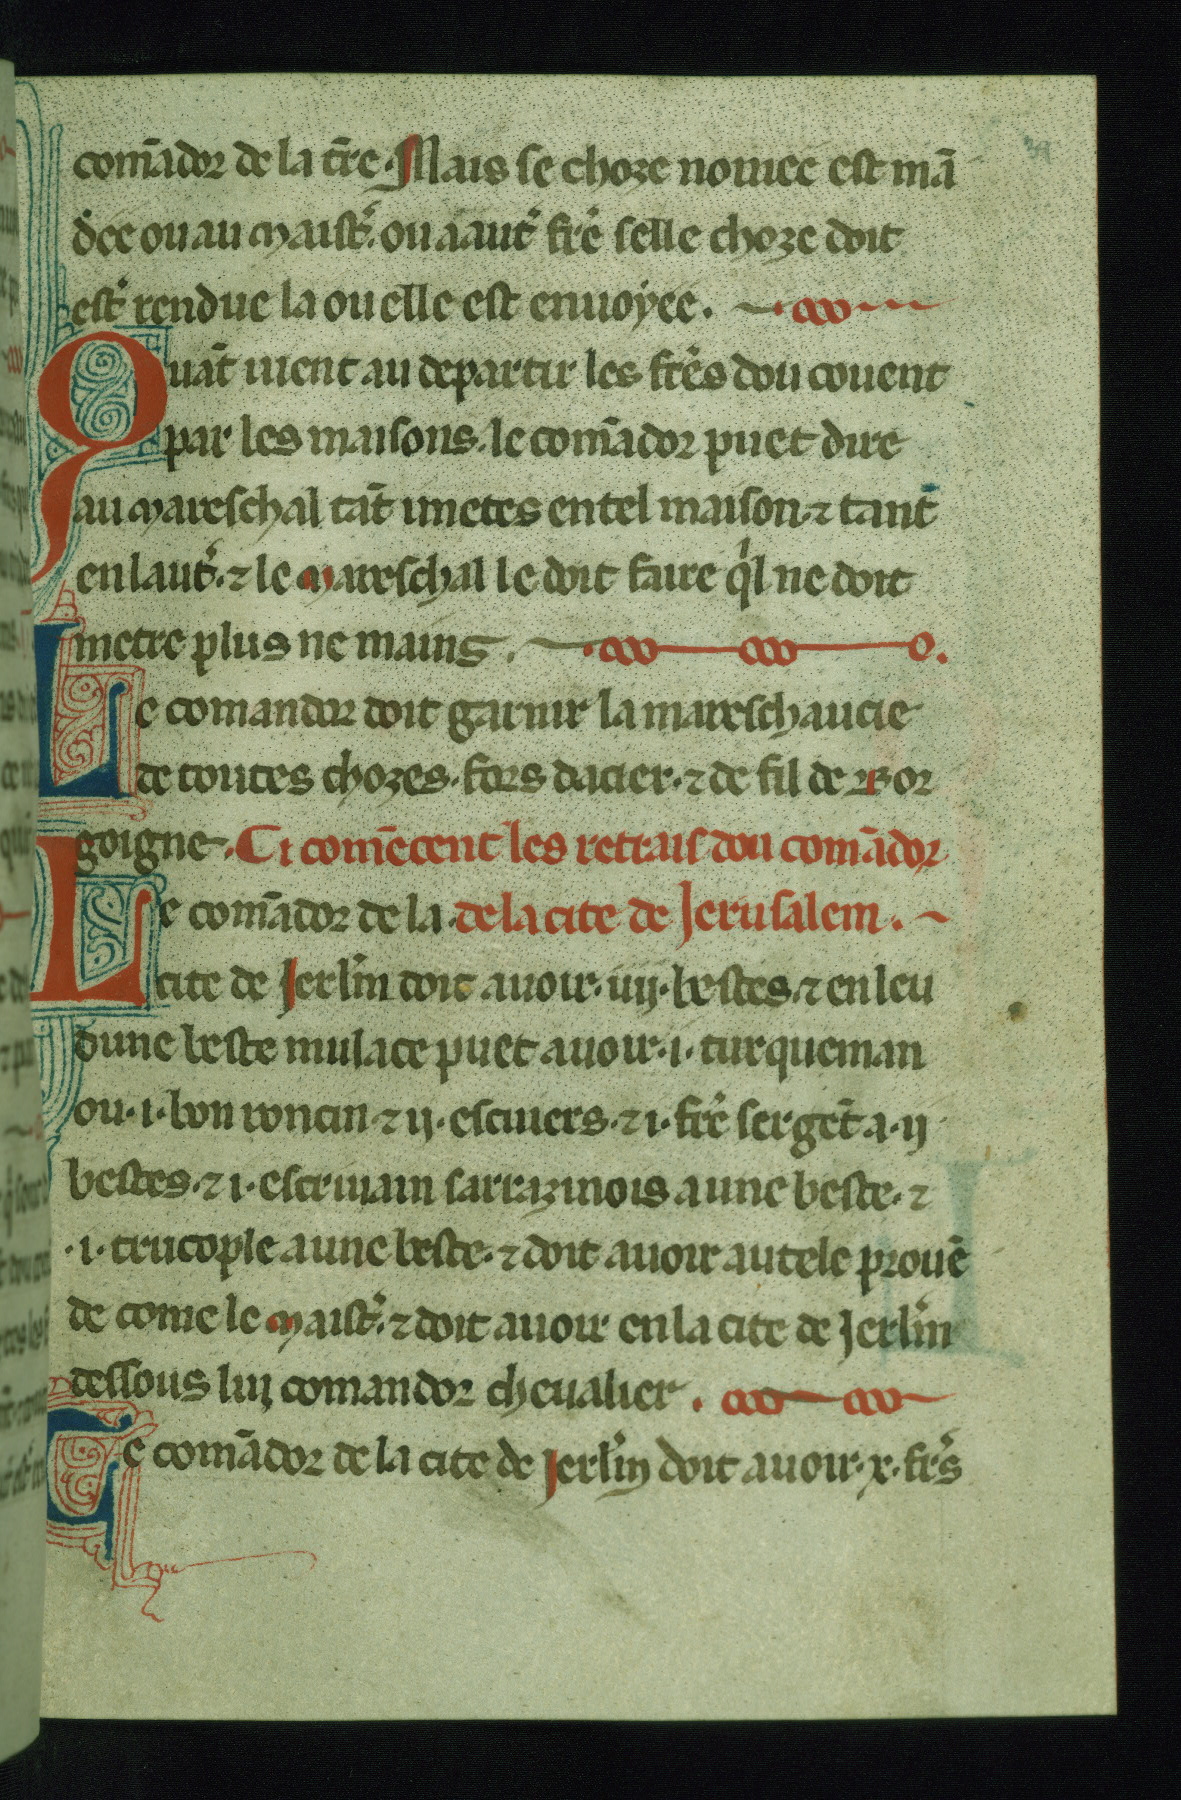 comādor de la t̄re. Mais se choze nomee est mā
dee ou au maist̾. ou a aut̾ fr̄e selle choze doit
est̾ rendue la ou elle est enuoyee.
Quāt uient au departir les fr̄es dou couent
par les maisons. le comādor puet dire
au mareschal tāt i metes en tel maison ⁊ tant
en laut̾. ⁊ le mareschal le doit faire qͥl ne doit
metre plus ne mains.
Le comandor doit garnir la mareschaucie
de toutes chozes. fors dacier. ⁊ de fil de Bor
goigne. Ci comēcent les retrais dou comādor
Le comādor de la de la cite de Jerusalem.
cite de Jerl̄m doit auoir. iiij. bestes. ⁊ en leu
dune beste mulace puet auoir. i. turqueman
ou. i. bon roncin ⁊ ij. escuiers. ⁊ i. fr̄e sergēt a. ij
bestes. ⁊ i. escriuain sarrazinois a une beste. ⁊
.i. trucople a une beste. ⁊ doit auoir autele prouē
de come le maist̾. ⁊ doit auoir en la cite de Jerl̄m
dessous luj comandor cheualier.
Le comādor de la cite de Jerl̄m doit auoir. x. fr̄s